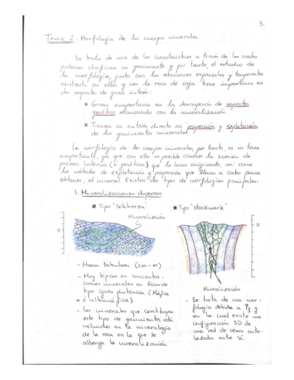 3.
Tema 2. Morfología de los cuerpos minerales
Se trata de una de las características a través de la cual
podemos clasificar un yacimiento y por tanto, el estudio de
la morfología, junto con las relaciones espaciales y
existente en ellos y con la roca de caja tiene importancia en
dos aspectos de gran interés:
* Gran importancia en la descripción de aspectos
genéticos relacionados con la mineralización
* Tienen un interés directo en prospección y explotación
de los yacimientos minerales.
La morfología de los cuerpos minerales, por tanto, es un tema
importante, ya que con ella es posible conocer la
(génesis) y la
los métodos de explotación y prospección que llevar a cabo para
obtener el mineral. Existen dos tipos de morfologías principales:
1. Mineralizaciones dispersas
* Tipo "Schlieren"
* Tipo "stockwork"
Mineralización
Mineralización
- Masas tabulares (cm-m)
- Muy típicas en concentra-
ciones minerales en rocas de
tipo ígneo plutónico (Máfica
o ultramáfica)
- Los minerales que constituyen
este tipo de yacimiento están
incluidos en la mineralogía
de la roca en la que se
alberga la mineralización
- Se trata de una mor-
fología debida a
en la cual existe una
configuración 3D de
una red de venas entre-
lazadas entre sí.